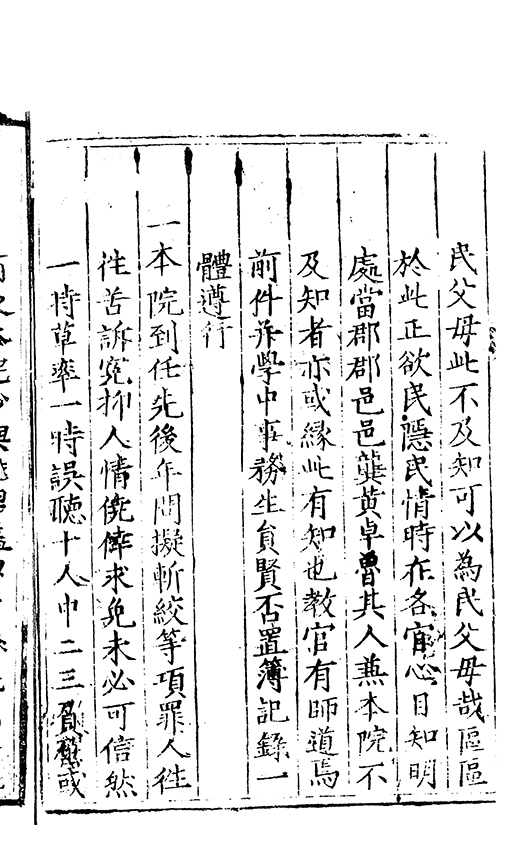 民父母此不及知可以為民父母哉區區
於此正欲民隱民情時在各官心目知明
處當郡郡邑邑龔黃卓魯其人兼本院不
及知者亦或緣此有知也教官有師道焉
前件并學中事務生員賢否置簿記錄一
體遵行
一本院到任先後年問擬斬絞等項罪人往
往苦訴冤抑人情僥倖求免未必可信然
一時草率一時誤聽十人中二三或